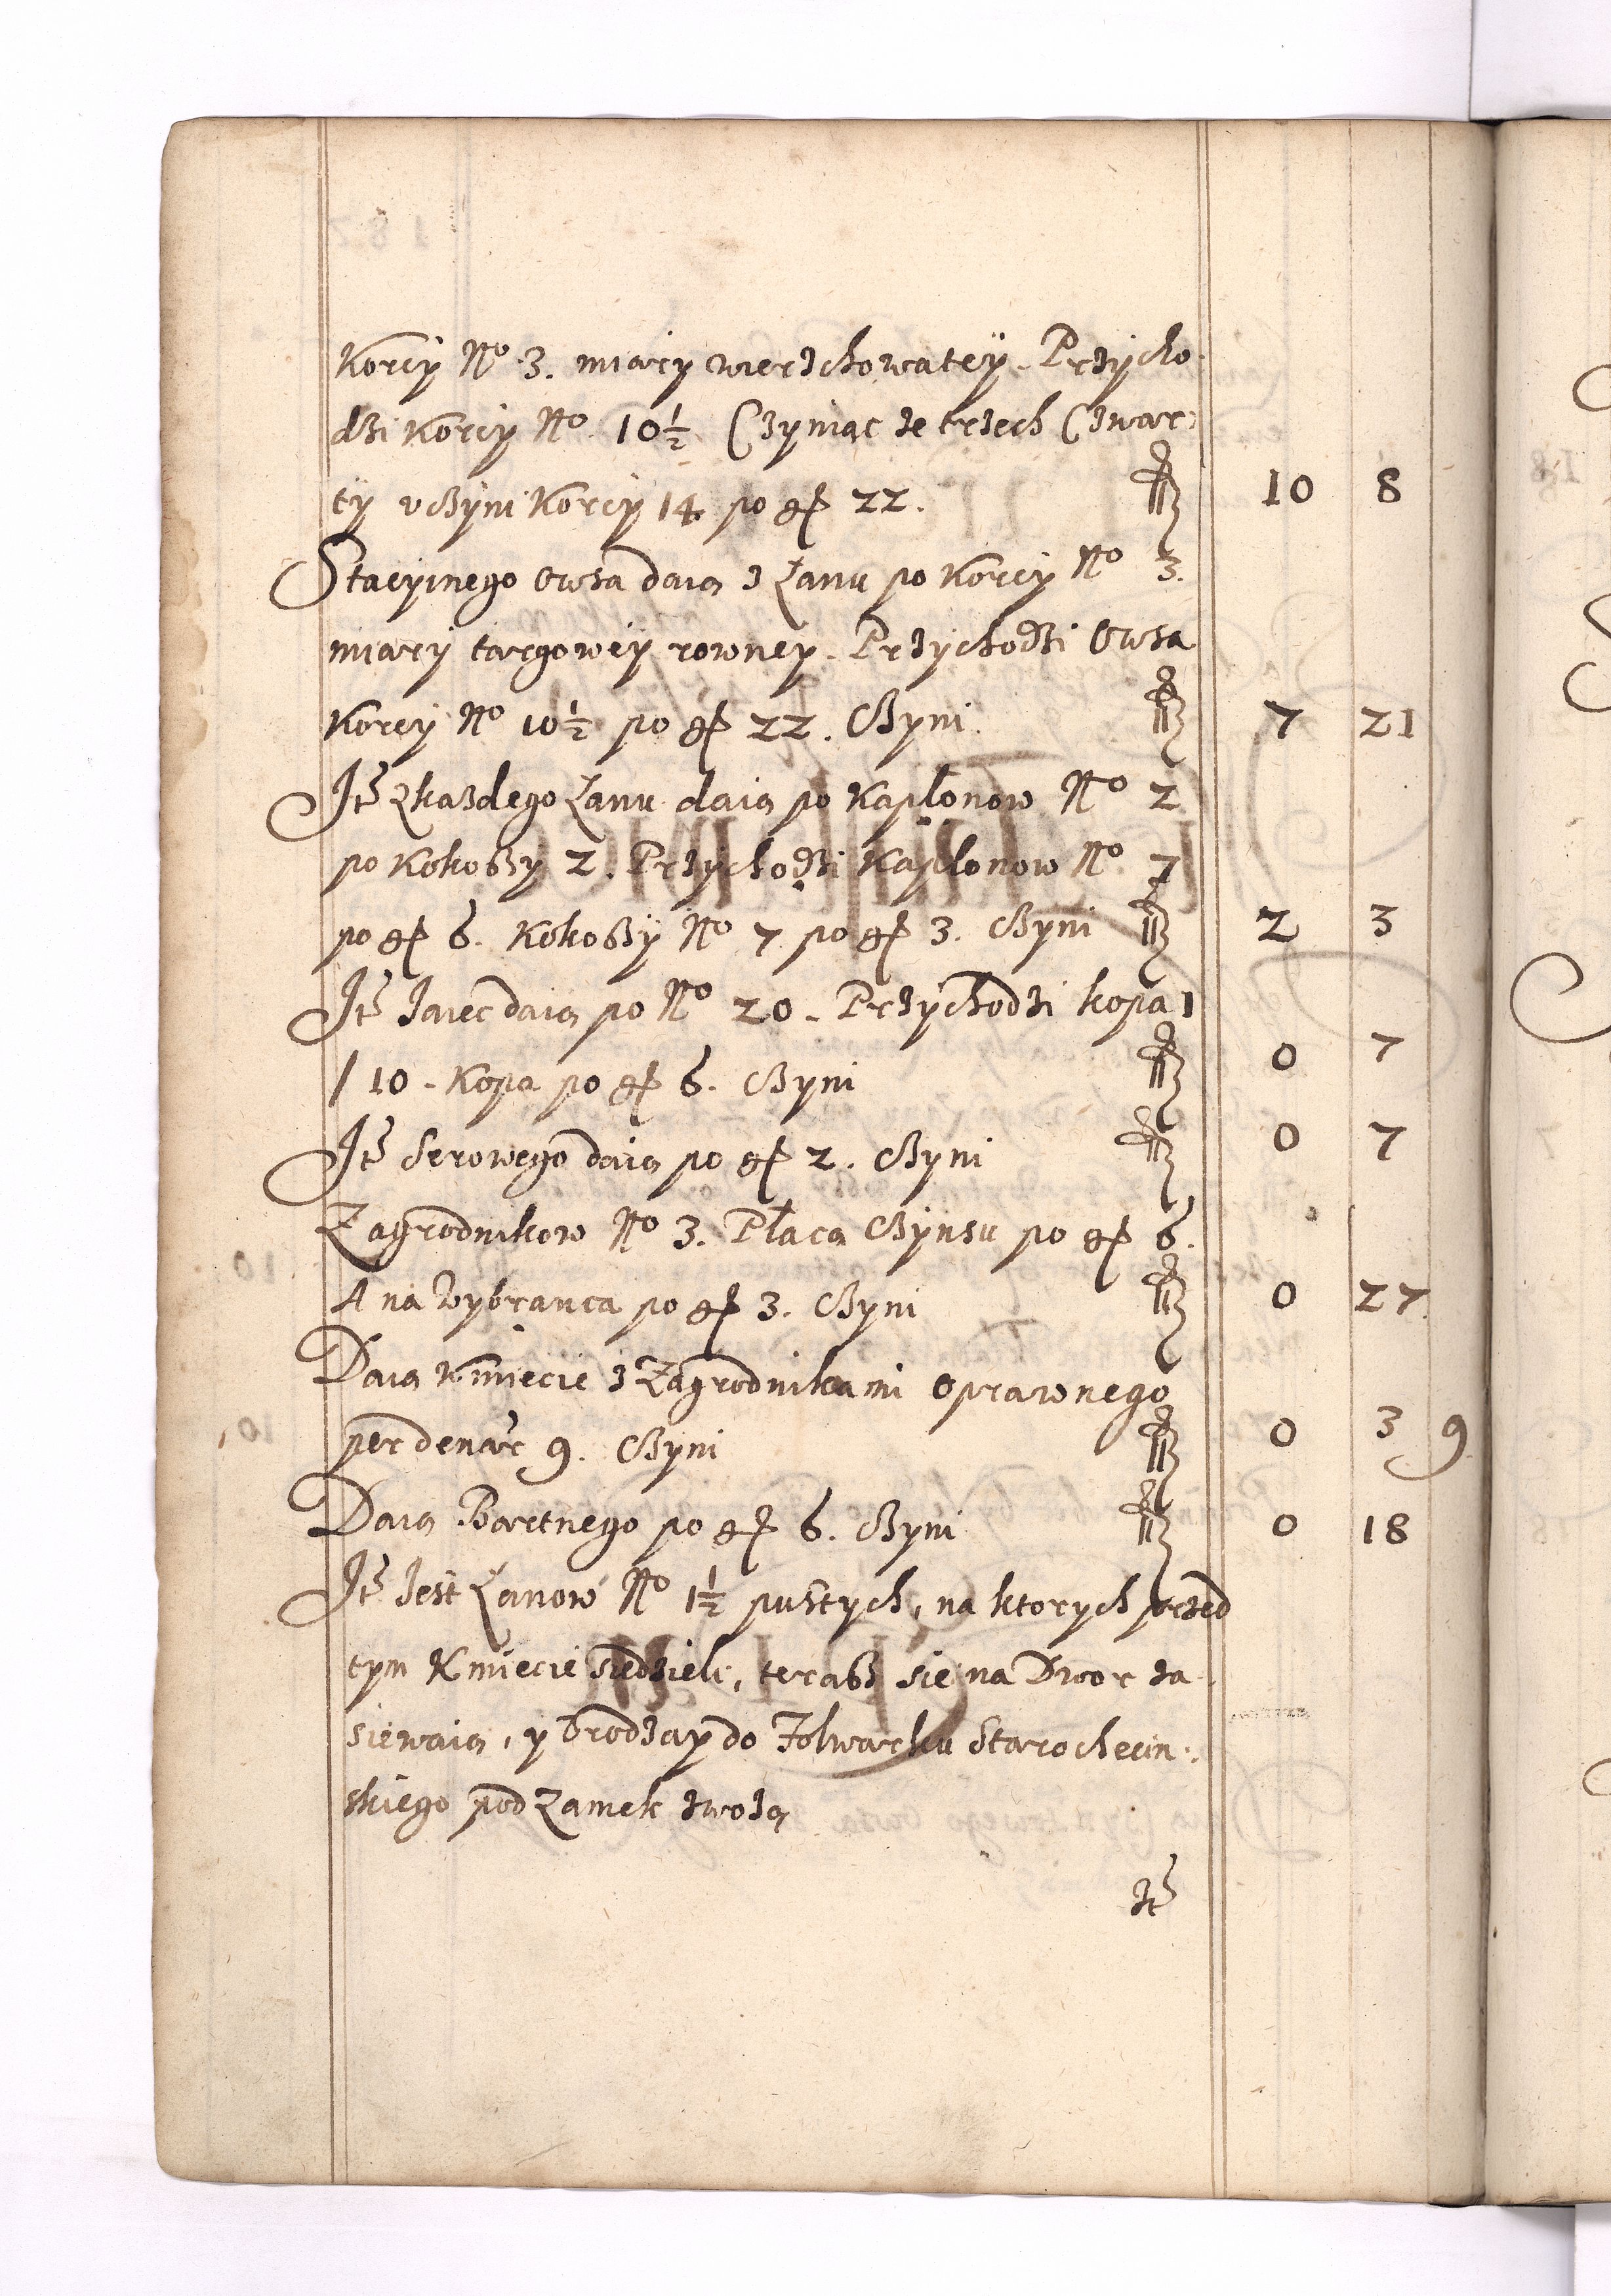 Korcÿ No 3. miarÿ wierzchowateÿ. Przÿcho
dzi Korcÿ No 10½ Czÿniąc ze trzech Czwar:
tÿ vczÿni Korcÿ 14 po gr 22. 10 8
Stacÿinego Owsa daią z Łanu po Korcÿ No 3.
miarÿ targoweÿ rowneÿ. Przÿchodzi Owsa
Korcÿ No 10½ po gr 22. Czÿni. 7 21
Itē zkazdego Łanu daią po Kapłonow No 2
po Kokoszy 2. Przÿchodzi Kapłonow No 7
po gr 6. Kokoszÿ No 7 po gr 3. Czÿni 2 3
Itē Jaiec daią po No 20. Przÿchodzi kopa 1
/ 10. Kopa po gr 6. Czÿni 0 7
Itē Serowego daią po gr 2. Czÿni 0 7
Zagrodnikow No 3. Płacą Czÿnsu po gr 6.
A na Wybranca po gr 3. Czÿni 0 27
Daią Kmiecie z Zagrodnikami oprawnego
per denar 9. Czÿni 0 3 9
Daią Bartnego po gr 6. Czÿni 0 18
Itē Jest Łanow No 1½ pustych, na ktorych przed
tym Kmiecie siedzieli, terasz sie na Dwor za
siewaią, y Vrodzay do Folwarku Starochecin:
skiego pod Zamek zwożą
Itē